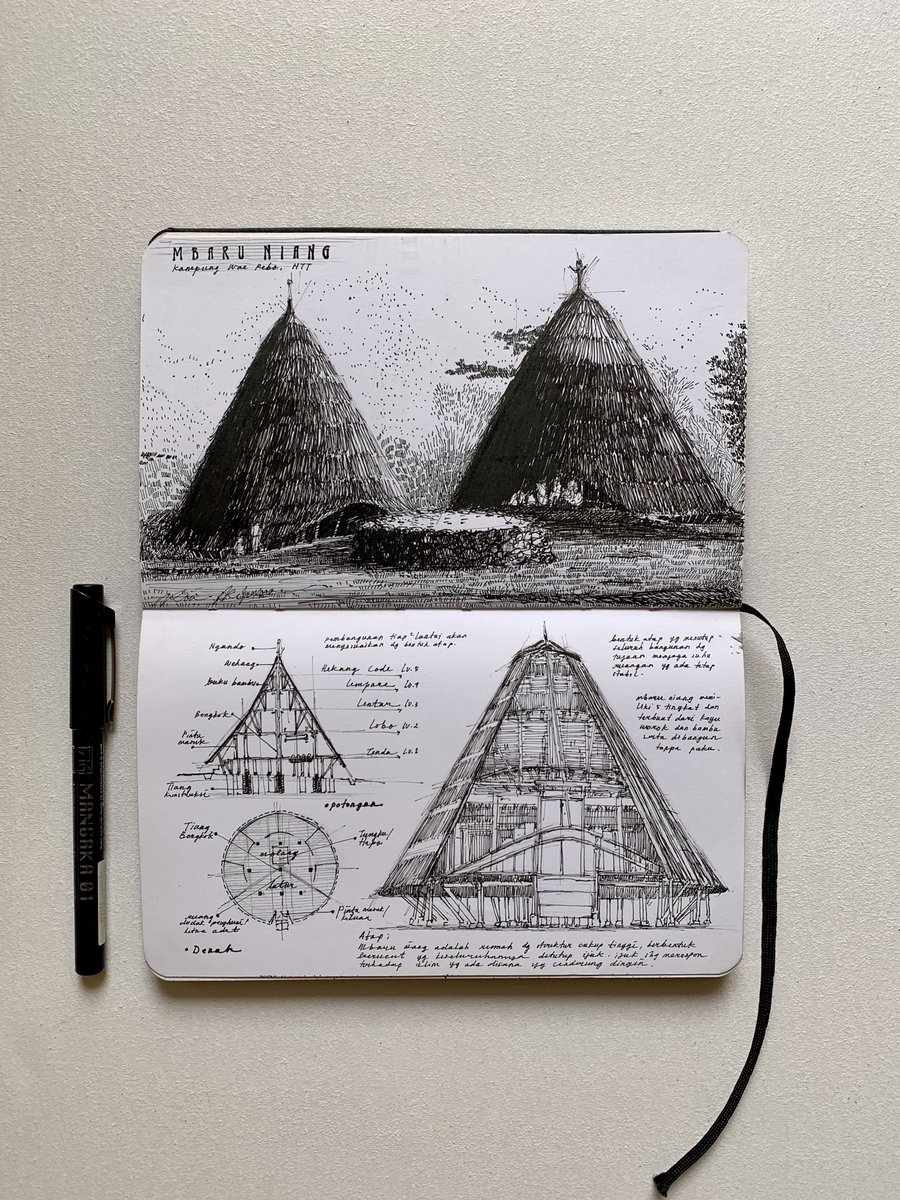 MBARU NIANG
Kampung Wae Rebo, NTT
Ngando
Wehang
buku bambu
Bongkok
Pintu masuk
Tiang konstruksi
pembangunan tiap lantai akan
menyesuaikan dg bentuk atap.
Hekang Code Lv.5
Lempare Lv.4
Lentar Lv.3
Lobo Lv.2
Tenda Lv.1
• potongan
Tiang Bongkok
Tungku/
Hapo
molang
lutur
ruang duduk penghuni/
ketua adat
Pintu masuk/
keluar
• Denah
bentuk atap yg menutup
seluruh bangunan dg
tujuan menjaga suhu
ruangan yg ada tetap
stabil.
mbaru niang memi-
liki 5 tingkat dan
terbuat dari kayu
worok dan bambu
serta dibangun
tanpa paku.
Atap:
Mbaru niang adalah rumah dg struktur cukup tinggi, berbentuk
kerucut yg keseluruhannya ditutup ijuk. ijuk sbg merespon
terhadap iklim yg ada disana yg cenderung dingin.
MANGAKA 01